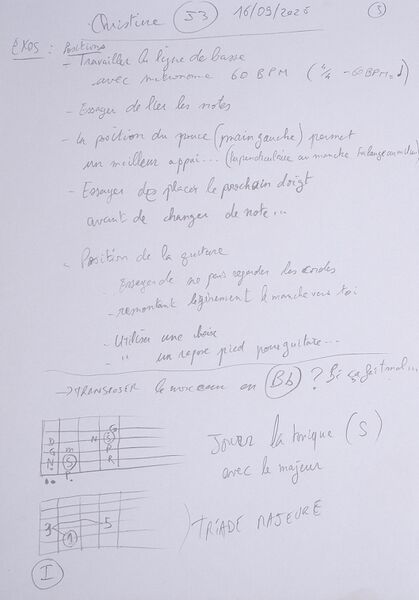 Christine 53 16/09/2026 5
EXOS : Positions
- Travailler la ligne de basse
avec metronome 60 BPM (4/4 - 60 BPM = ♩)
- Essayer de lier les notes
- La position du pouce (main gauche) permet
un meilleur appui... (perpendiculaire au manche
- Essayer de placer le prochain doigt
avant de changer de note...
- Position de la guitare
- Essayer de ne pas regarder les cordes
- remontant légèrement le manche vers toi
- Utiliser une
- " un repose pied pour guitare...
→ TRANSPOSER le morceau en Bb ? Si ça fait mal...
D N S
G m P
N S R
P.
Jouer la tonique (S)
avec le majeur
3 5
1
TRIADE MAJEURE
I